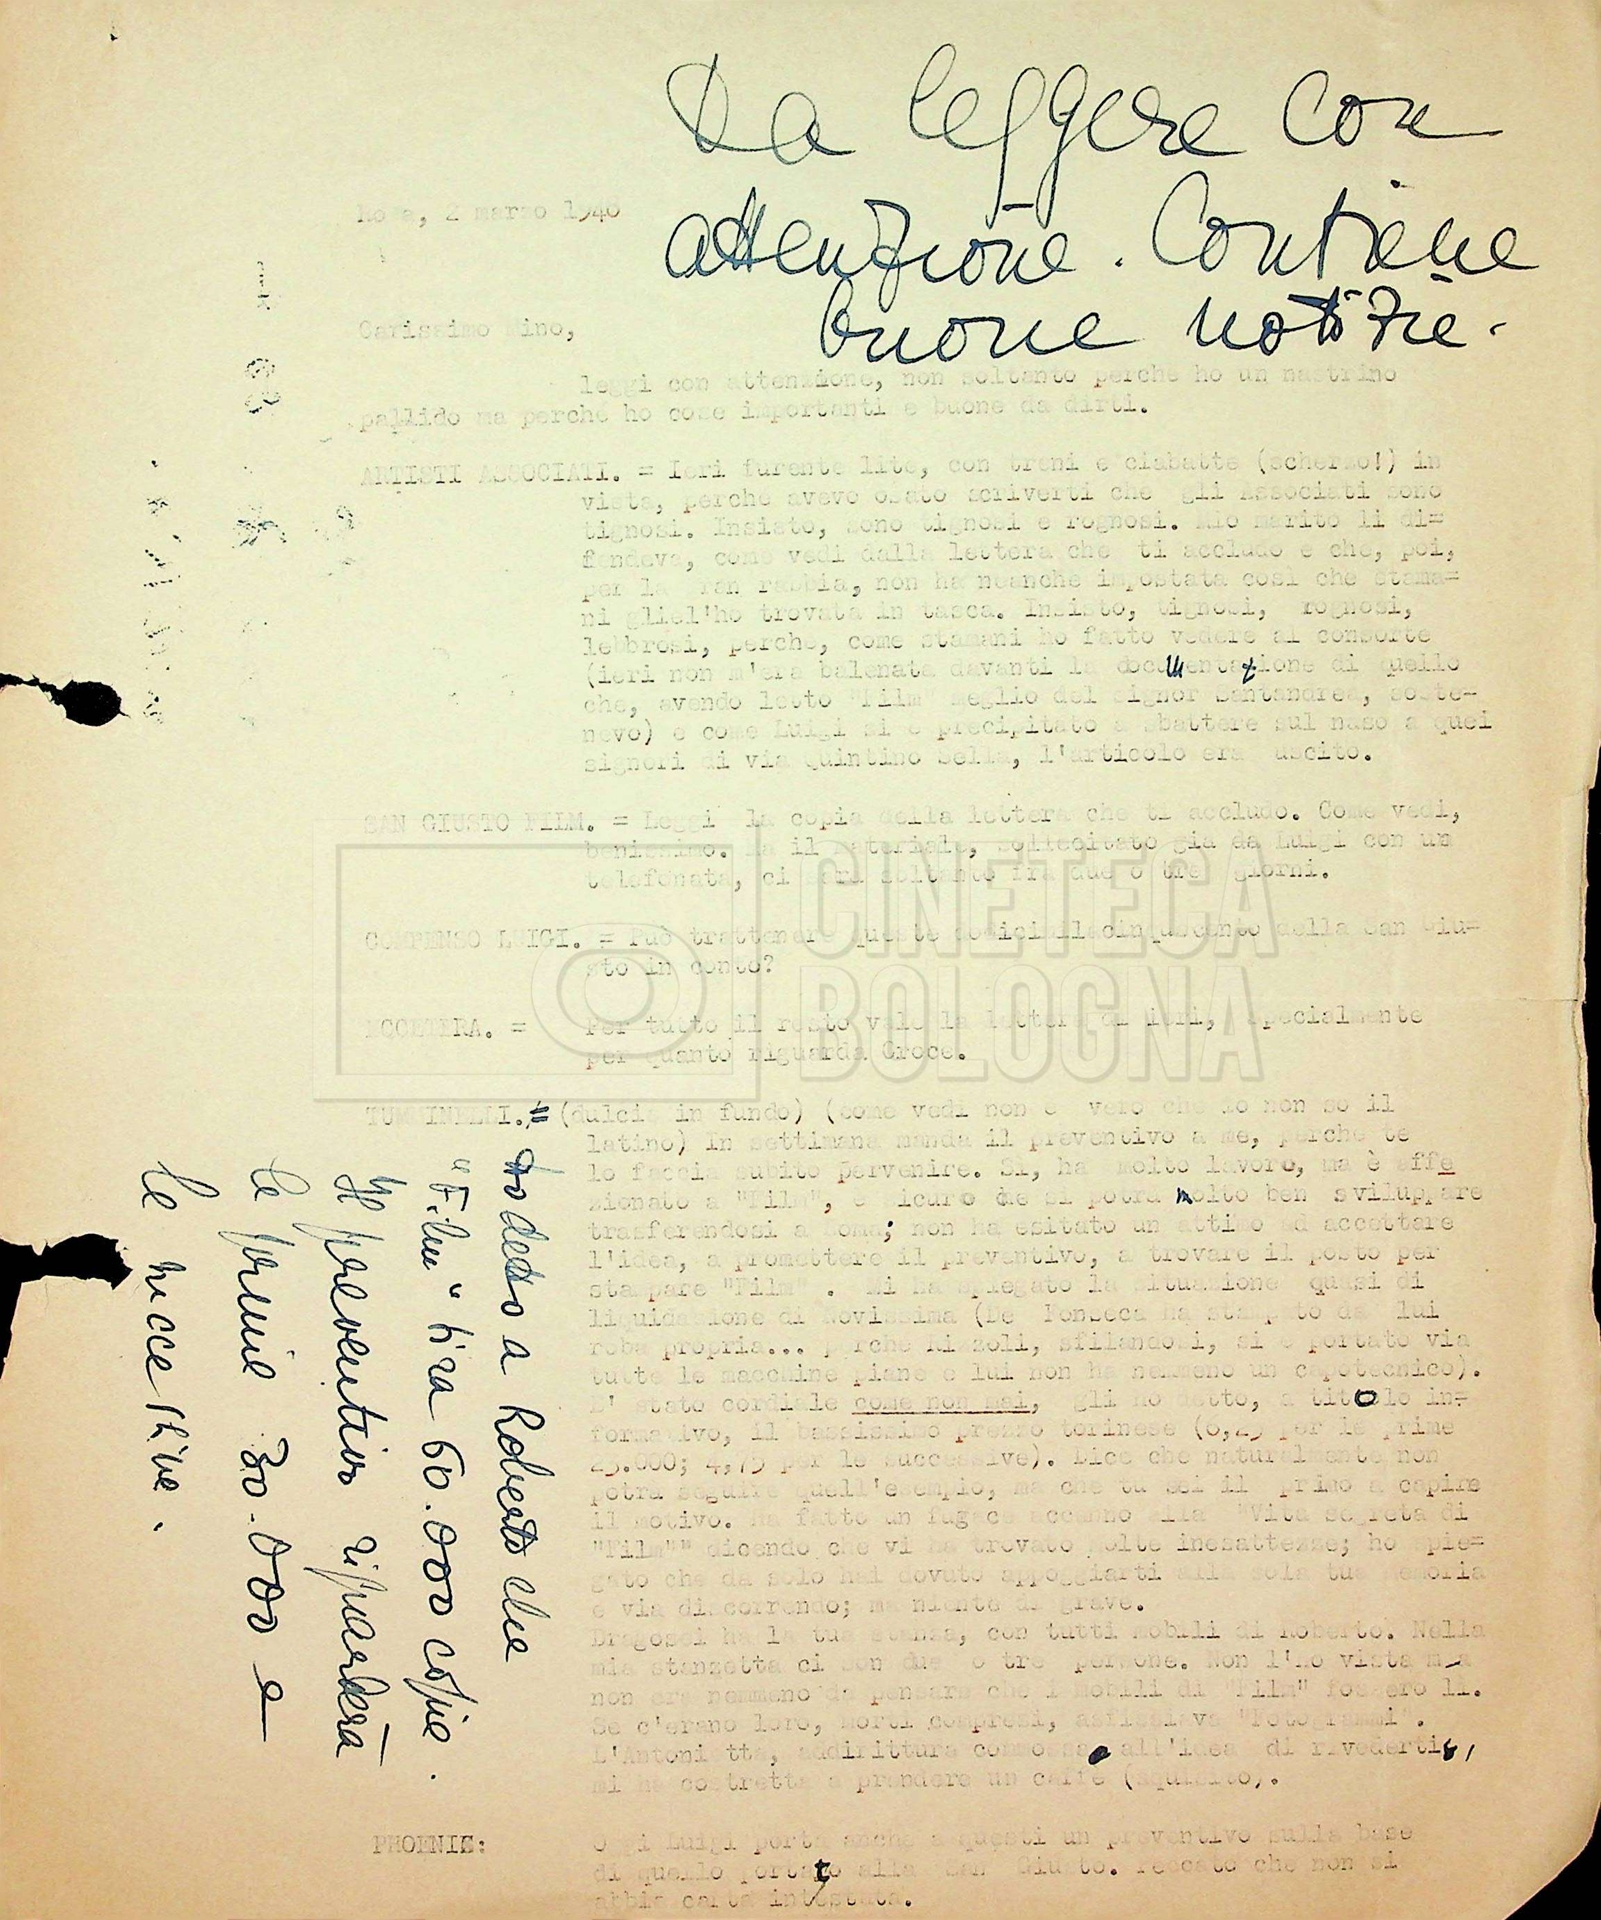 Da leggere con
attenzione. Contiene
buone notizie.
Roma, 2 marzo 1940
Carissimo Nino,
leggi con attenzione, non soltanto perchè ho un nastrino
pallido ma perchè ho cose importanti e buone da dirti.
ARTISTI ASSOCIATI. = Ieri furente lite, con treni e ciabatte (scherzo!) in
vista, perchè avevo osato scriverti che gli Associati sono
tignosi. Insisto, sono tignosi e rognosi. Mio marito li di=
fendeva, come vedi dalla lettera che ti accludo e che, poi,
per la gran rabbia, non ha neanche impostata così che stama=
ni gliel'ho trovata in tasca. Insisto, tignosi, rognosi,
lebbrosi, perchè, come stamani ho fatto vedere al consorte
(ieri non m'era balenata davanti la documentazione di quello
che, avendo letto "Film" meglio del signor Santandrea, soste-
nevo) e come Luigi si è precipitato a sbattere sul naso a quei
signori di via Quintino Sella, l'articolo era uscito.
SAN GIUSTO FILM. = Leggi la copia della lettera che ti accludo. Come vedi,
benissimo. Ma il materiale, sollecitato già da Luigi con una
telefonata, ci sarà soltanto fra due o tre giorni.
COMPENSO LUIGI. = Può trattenere queste dodicimilacinquecento della San Giu=
sto in conto?
SCONTERA. = Per tutto il resto vale la lettera di ieri, specialmente
per quanto riguarda Croce.
TUMMINELLI. = (dulcis in fundo) (come vedi non è vero che io non so il
latino) In settimana manda il preventivo a me, perchè te
lo faccia subito pervenire. Sì, ha molto lavoro, ma è affe
zionato a "Film", è sicuro che si potrà molto ben sviluppare
trasferendosi a Roma; non ha esitato un attimo ad accettare
l'idea, a promettere il preventivo, a trovare il posto per
stampare "Film". Mi ha spiegato la situazione quasi di
liquidazione di Novissima (De Fonseca ha stampato da lui
roba propria... perchè Rizzoli, sfilandosi, si è portato via
tutte le macchine piane e lui non ha nemmeno un capotecnico).
E' stato cordiale come non mai, gli ho detto, a titolo in=
formativo, il bassissimo prezzo torinese (0,25 per le prime
25.000; 4,75 per le successive). Dice che naturalmente non
potrà seguire quell'esempio, ma che tu sei il primo a capire
il motivo. Ha fatto un fugace accenno alla "Vita segreta di
"Film"" dicendo che vi ha trovato molte inesattezze; ho spie=
gato che da solo hai dovuto appoggiarti alla sola tua memoria
e via discorrendo; ma niente di grave.
Dragosei ha la tua stanza, con tutti mobili di Roberto. Nella
mia stanzetta ci son due o tre persone. Non l'ho vista ma
non era nemmeno da pensare che i mobili di "Film" fossero lì.
Se c'erano loro, morti compresi, asfissiava "Fotogrammi".
L'Antonietta, addirittura commossa all'idea di rivederti,
mi ha costretta a prendere un caffè (squisito).
PHOENIX: Oggi Luigi porta anche a questi un preventivo sulla base
di quello portato alla San Giusto. Peccato che non si
abbia carta intestata.
Ho detto a Roberto che
"Film" tira 60.000 copie.
Il preventivo riguarderà
le prime 30.000 e
le successive.
CINETECA
BOLOGNA